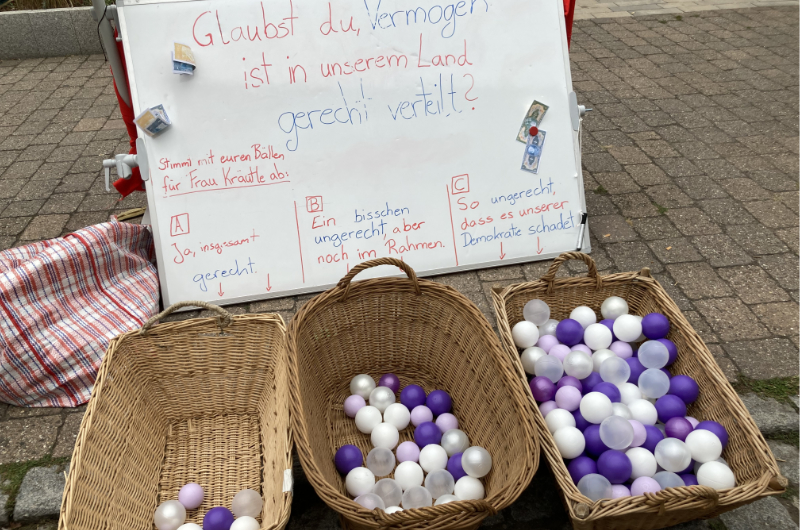 Glaubst du, Vermögen
ist in unserem Land
gerecht verteilt?
Stimmt mit euren Bällen
für Frau Kräutle ab:
A
Ja, insgesamt
gerecht.
B
Ein bisschen
ungerecht, aber
noch im Rahmen.
C
So ungerecht,
dass es unserer
Demokratie schadet